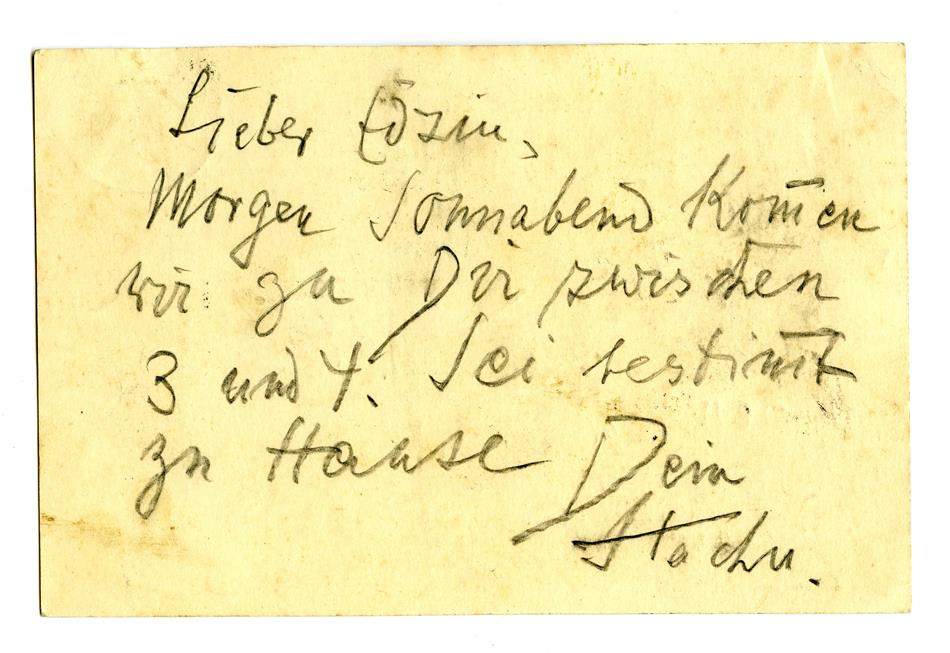 Lieber Edzin,
Morgen Sonnabend kom̄en
wir zu Dir zwischen
3 und 4. Sei bestim̄t
zu Hause Dein
Stachu.